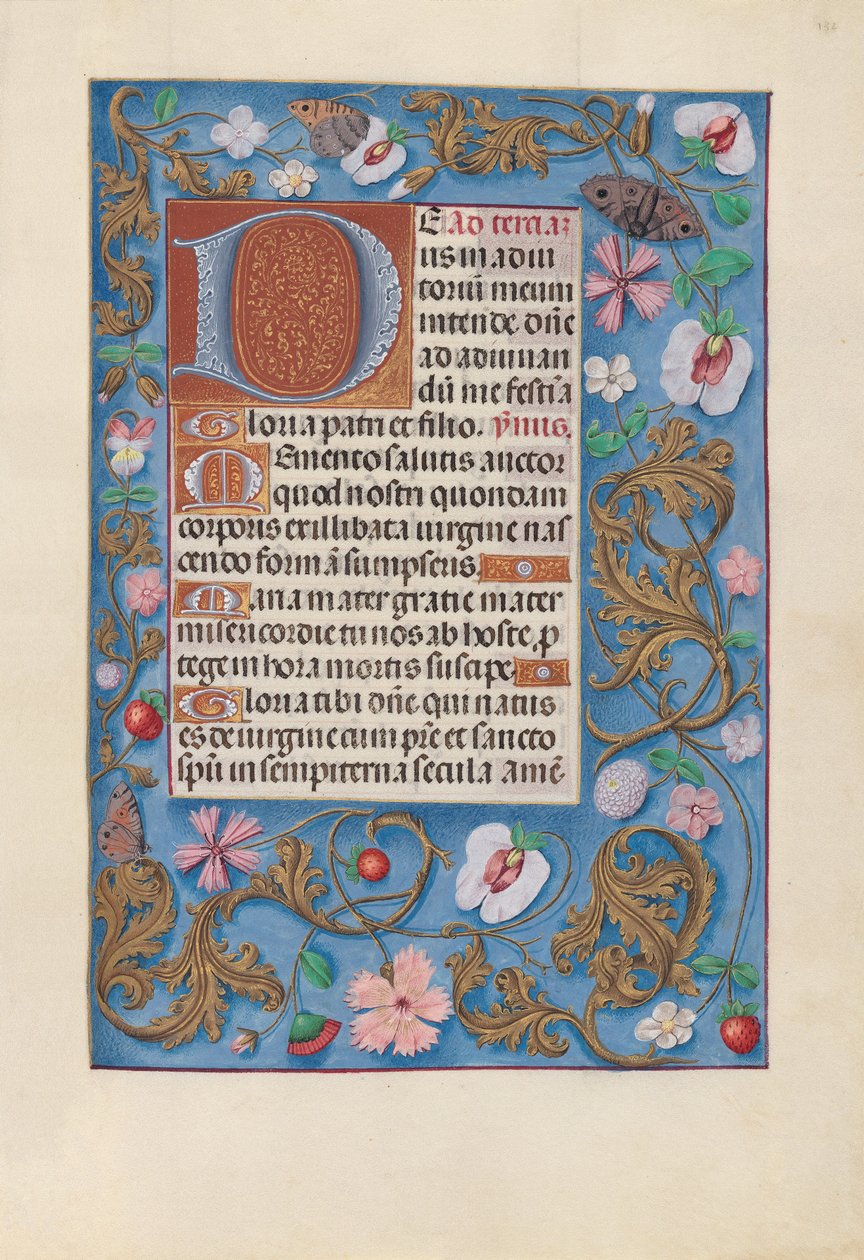 132
DE Ad terciaz
us in adiu
toriū meum
intende dñe
ad adiuuan
dū me festīa
Gloria patri et filio. ymus.
Memento salutis auctor
quod nostri quondam
corporis ex illibata uirgine nas
cendo formā sumpseris.
Maria mater gratie mater
misericordie tu nos ab hoste p
tege in hora mortis suscipe.
Gloria tibi dñe qui natus
es de uirgine cum pr̄e et sancto
sp̄u in sempiterna secula Amē